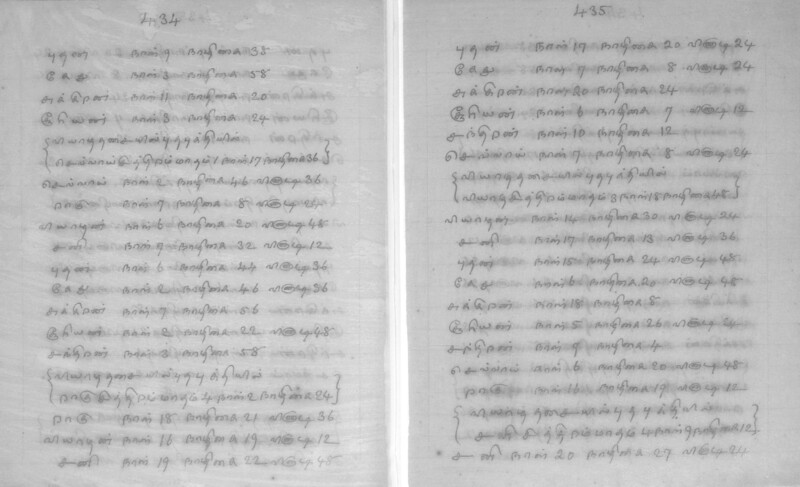 434
புதன் நாள் 9 நாழிகை 35
கேது நாள் 3 நாழிகை 58
சுக்கிரன் நாள் 11 நாழிகை 20
சூரியன் நாள் 3 நாழிகை 24
வியாழதசையில் புதபுத்தியில்
செவ்வாய் சித்திரம் மாதம் 1 நாள் 17 நாழிகை 36
செவ்வாய் நாள் 2 நாழிகை 46 வினாடி 36
ராகு நாள் 7 நாழிகை 8 வினாடி 24
வியாழன் நாள் 6 நாழிகை 20 வினாடி 48
சனி நாள் 7 நாழிகை 32 வினாடி 12
புதன் நாள் 6 நாழிகை 44 வினாடி 36
கேது நாள் 2 நாழிகை 46 வினாடி 36
சுக்கிரன் நாள் 7 நாழிகை 56
சூரியன் நாள் 2 நாழிகை 22 வினாடி 48
சந்திரன் நாள் 3 நாழிகை 58
வியாழதசையில் புதபுத்தியில்
ராகு சித்திரம் மாதம் 4 நாள் 2 நாழிகை 24
ராகு நாள் 18 நாழிகை 21 வினாடி 36
வியாழன் நாள் 16 நாழிகை 19 வினாடி 12
சனி நாள் 19 நாழிகை 22 வினாடி 48
435
புதன் நாள் 17 நாழிகை 20 வினாடி 24
கேது நாள் 7 நாழிகை 8 வினாடி 24
சுக்கிரன் நாள் 20 நாழிகை 24
சூரியன் நாள் 6 நாழிகை 7 வினாடி 12
சந்திரன் நாள் 10 நாழிகை 12
செவ்வாய் நாள் 7 நாழிகை 8 வினாடி 24
வியாழதசையில் புதபுத்தியில்
வியாழ சித்திரம் மாதம் 3 நாள் 18 நாழிகை 48
வியாழன் நாள் 14 நாழிகை 30 வினாடி 24
சனி நாள் 17 நாழிகை 13 வினாடி 36
புதன் நாள் 15 நாழிகை 24 வினாடி 48
கேது நாள் 6 நாழிகை 20 வினாடி 48
சுக்கிரன் நாள் 18 நாழிகை 8
சூரியன் நாள் 5 நாழிகை 26 வினாடி 24
சந்திரன் நாள் 9 நாழிகை 4
செவ்வாய் நாள் 6 நாழிகை 20 வினாடி 48
ராகு நாள் 16 நாழிகை 19 வினாடி 12
வியாழதசையில் புதபுத்தியில்
சனி சித்திரம் மாதம் 4 நாள் 9 நாழிகை 12
சனி நாள் 20 நாழிகை 27 வினாடி 24